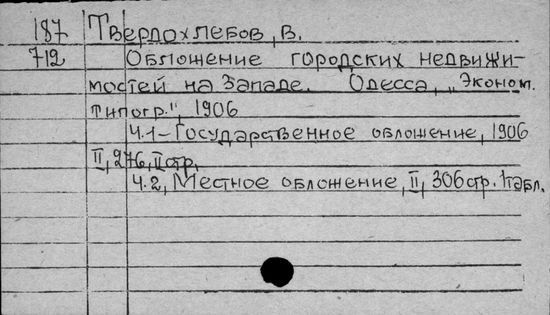 187 Твердохлебов, В.
712 Обложение городских недвижи-
мостей на Западе. Одесса, "Эконом.
типогр.", 1906
Ч.1-Государственное обложение, 1906
II, 276, II стр.
Ч.2, Местное обложение, II, 306 стр. 1 табл.